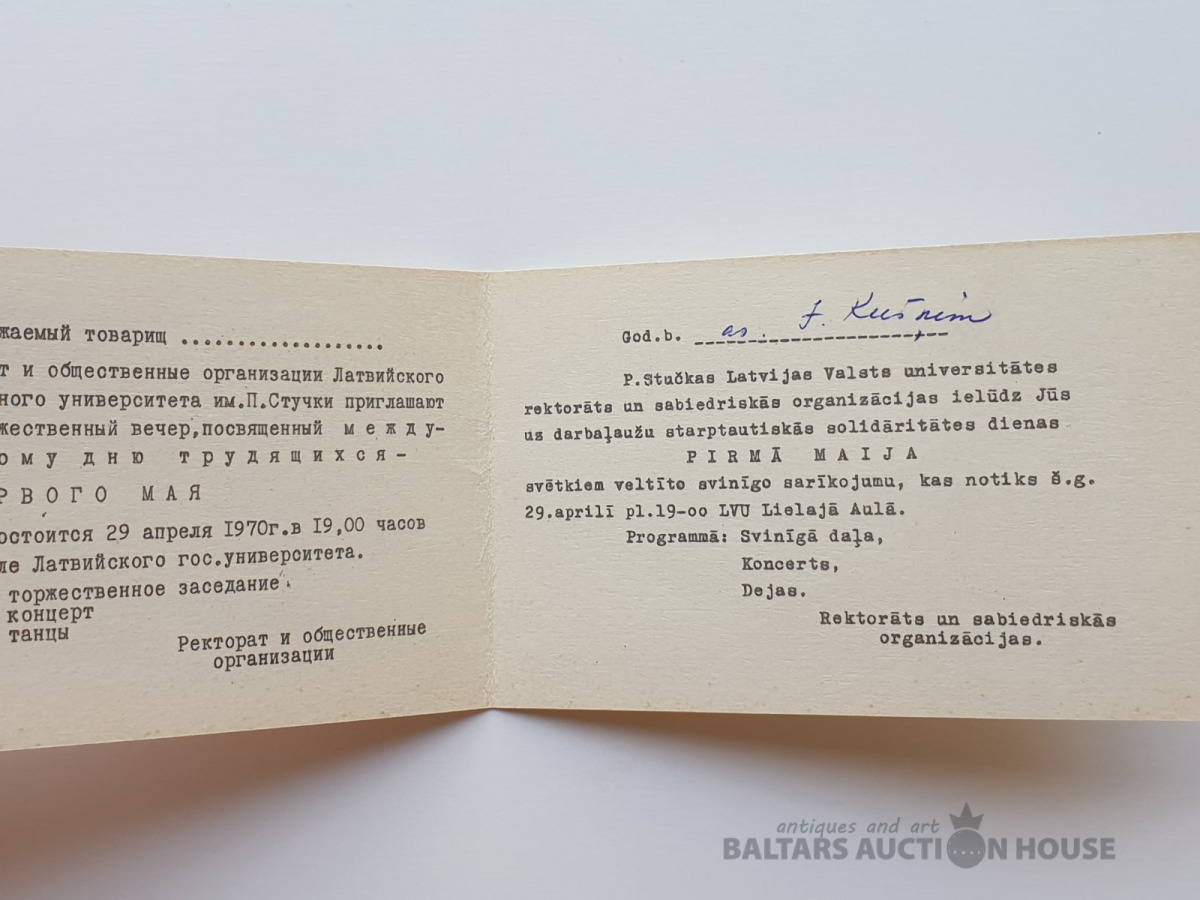 жаемый товарищ ...................
т и общественные организации Латвийского
ного университета им.П.Стучки приглашают
жественный вечер,посвященный м е ж д у-
о м у  д н ю  т р у д я щ и х с я -
Р В О Г О  М А Я
остоится 29 апреля 1970г.в 19,00 часов
ле Латвийского гос.университета.
торжественное заседание
концерт
танцы
Ректорат и общественные
организации
God.b. as. J.
P.Stučkas Latvijas Valsts universitātes
rektorāts un sabiedriskās organizācijas ielūdz Jūs
uz darbaļaužu starptautiskās solidāritātes dienas
P I R M Ā  M A I J A
svētkiem veltīto svinīgo sarīkojumu, kas notiks š.g.
29.aprilī pl.19-oo LVU Lielajā Aulā.
Programmā: Svinīgā daļa,
Koncerts,
Dejas.
Rektorāts un sabiedriskās
organizācijas.
antiques and art
BALTARS AUCTION HOUSE